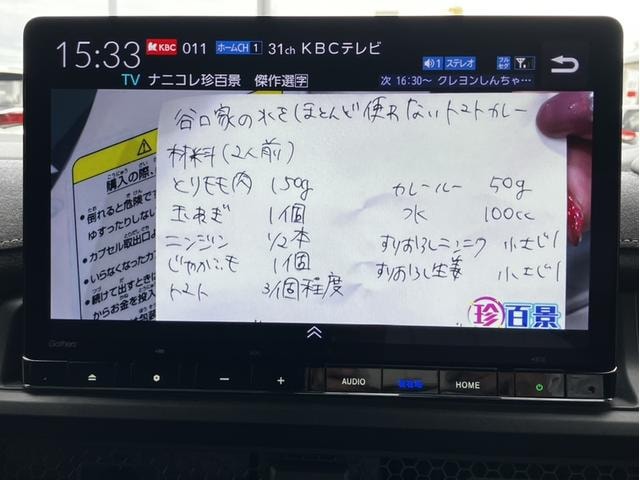 15:33 KBC 011 ホームCH 1 31ch KBCテレビ
1 ステレオ フルセグ
TV ナニコレ珍百景 傑作選字 次 16:30～ クレヨンしんちゃ…
谷口家の水をほとんど使わないトマトカレー
材料(2人前)
とりモモ肉 150g カレールー 50g
玉ねぎ 1個 水 100cc
ニンジン 1/2本 すりおろしニンニク 小さじ1
じゃがいも 1個 すりおろし生姜 小さじ1
トマト 3個程度
⚠
購入の際、
こうにゅう さい
●倒れると危険です
ゆすったりしない
●カプセル取出口
●いらなくなったカ
●続けて出すときに
からお金を投入
珍百景
Gathers
AUDIO 現在地 HOME